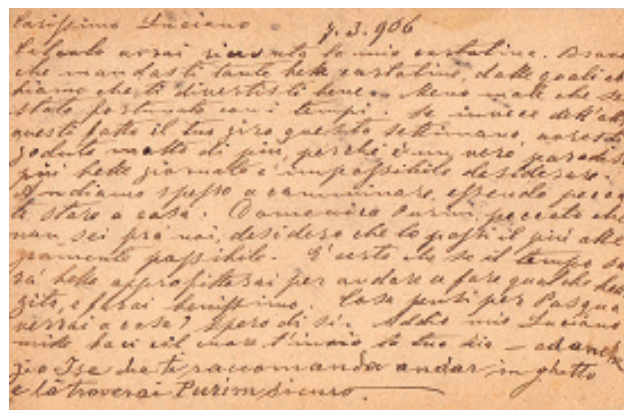 Carissimo Luciano 9.3.906
Calcolo avrai ricevuto la mia cartolina. Bravo
che mandasti tante belle cartoline, dalle quali
che ti divertisti bene. Meno male che sei
stato fortunato coi tempi. Se invece dell'altra
avesti fatto il tuo giro questa settimana, avresti
goduto molto di più, perchè è un vero paradiso
più belle giornate è impossibile desiderare.
Andiamo spesso a camminare, essendo peccato
di stare a casa. Domenica Purim, peccato che
non sei frà noi, desidero che lo passi il più alle
gramente possibile. È certo che se il tempo sa
rà bello approfitterai per andare a fare qualche bella
gita, e farai benissimo. Cosa pensi per Pasqua
verrai a casa? Spero di sì. Addio mio Luciano
mille baci col cuore t'invia la tua
zio Ise che ti raccomanda andar in ghetto
e là troverai Purim sicuro.